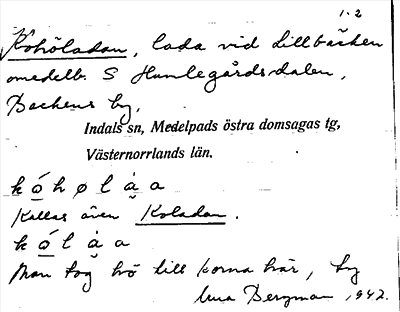 1-2
Kohöladan, lada vid Lillbäcken
omedelb. S Humlegårdsdalen,
Backens by,
Indals sn, Medelpads östra domsagas tg,
Västernorrlands län.
kó̱hølȧ̯a
Kallas även Koladan.
kó̱lȧ̯a
Man tog hö till korna här,
Bergman 1942.